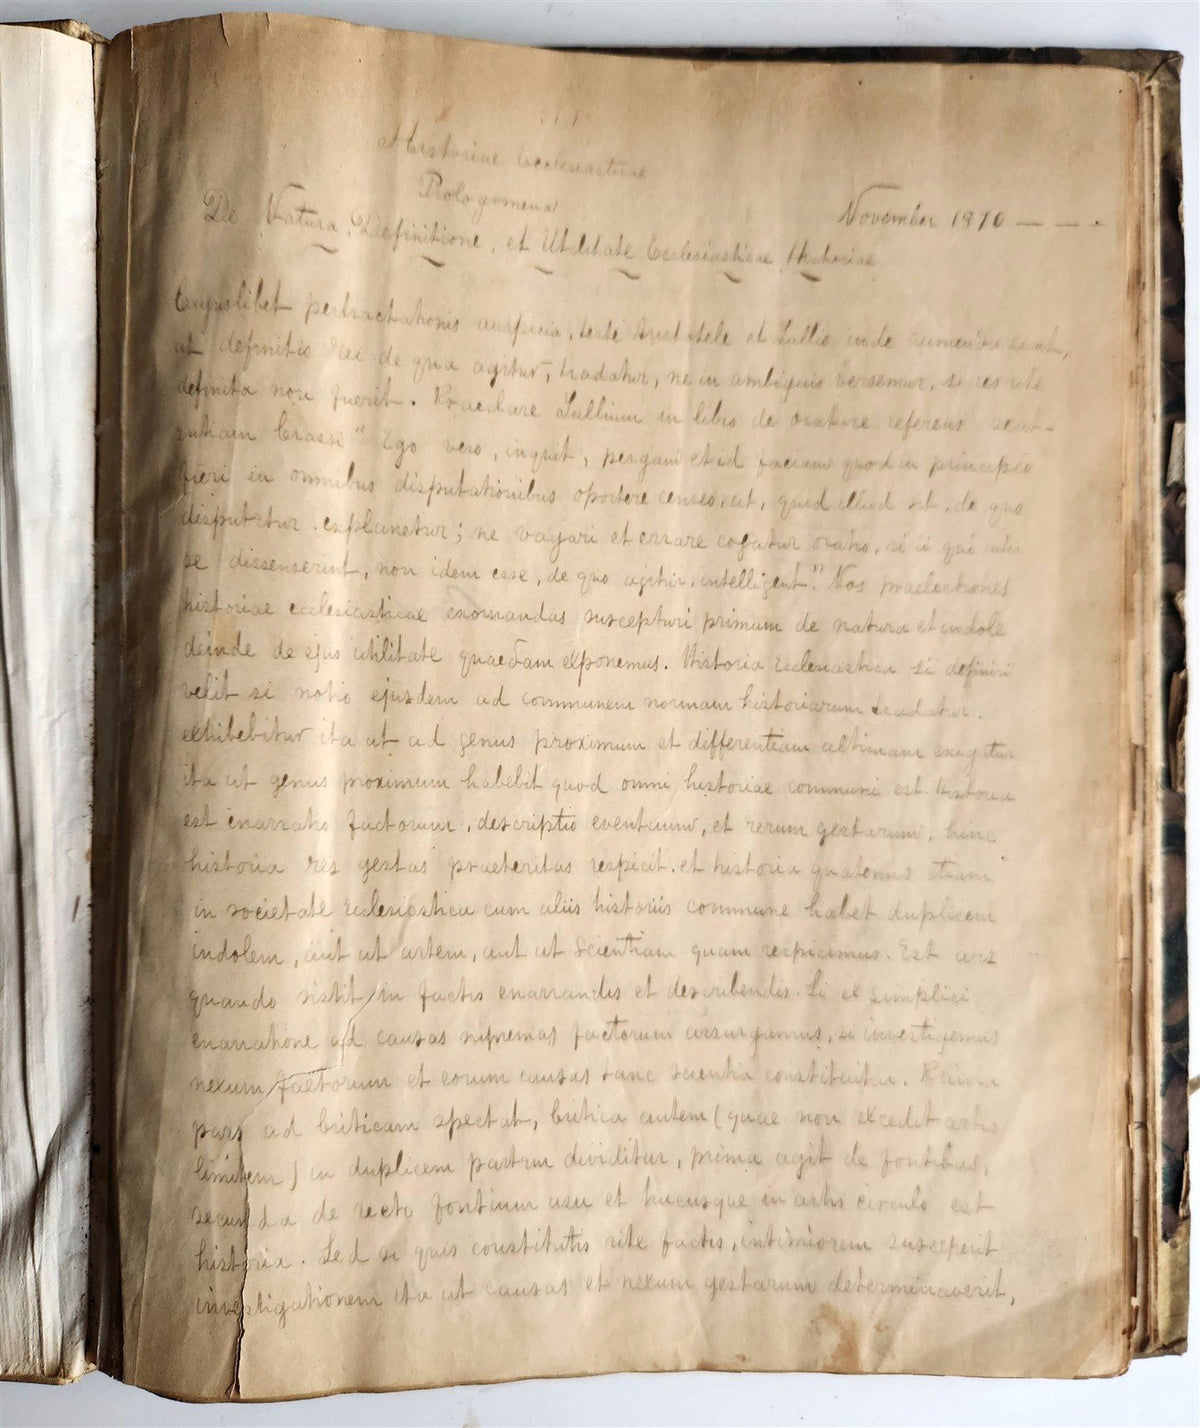 (1)
Historiae Ecclesiasticae
Prologomena
November 1870 — — -
De Natura, Definitione, et Utilitate Ecclesiasticae Historiae
Cujuslibet pertractationis auspicia, teste Aristotele et Tullio inde sumenda sunt,
ut definitio rei de qua agitur, tradatur, ne in ambiguis versemur, si res rite
definita non fuerit. Praeclare Tullium in libro de oratore referens sent-
entiam Crassi "Ego vero, inquit, pergam et id faciam quod in principio
fieri in omnibus disputationibus oportere censeo, ut, quid illud sit, de quo
disputetur explanetur; ne vagari et errare cogatur oratio, si ii qui inter
se dissenserint, non idem esse, de quo agitur, intelligent." Nos praelectiones
historiae ecclesiasticae exornandas suscepturi primum de natura et indole
deinde de ejus utilitate quaedam exponemus. Historia Ecclesiastica si definiri
velit si notio ejusdem ad communem normam historiarum tradatur,
exhibebitur ita ut ad genus proximum et differentiam ultimam exigitur
ita ut genus proximum habebit quod omni historiae communi est. Historia
est enarratio factorum, descriptio eventuum, et rerum gestarum, hinc
historia res gestas praeteritas respicit. et historia quatenus etiam
in societate Ecclesiastica cum aliis historiis commune habet duplicem
indolem, aut ut artem, aut ut Scientiam quam respicimus. Est ars
quando sistit in factis enarrandis et describendis. Si ex simplici
enarratione ad causas supremas factorum assurgamus, si investigemus
nexum factorum et eorum causas tunc scientia constituitur. Prima
pars ad Criticam spectat, Critica autem (quae non excedit artis
limitem) in duplicem partem dividitur, prima agit de fontibus,
secunda de recto fontium usu et hucusque in artis circulo est
historia. Sed si quis constitutis rite factis, intimiorem susceperit
investigationem ita ut causas et nexum gestarum determinaverit,